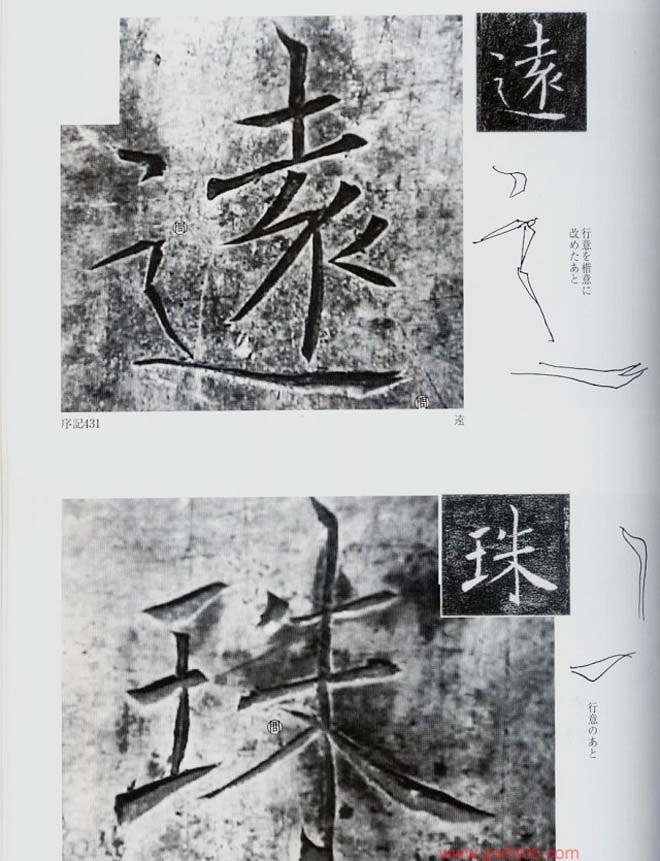 遠
遠
行意を楷意に
改めたあと
問
問
序記431
遠
珠
珠
問
行意のあと
www.gx8899.com